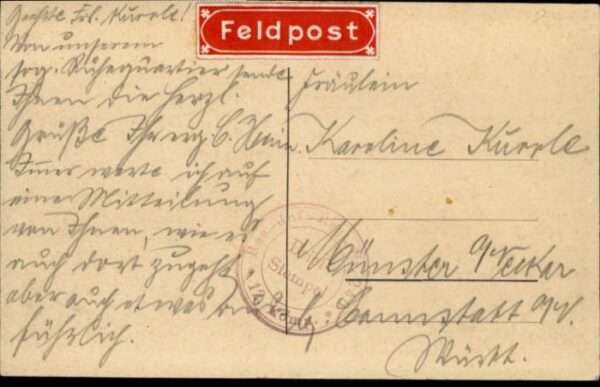 Geehrte Frl. Kurrle!
Von unserem
sog. Ruhequartier sende
Ihnen die herzl.
Grüße Ihr erg.
Immer warte ich auf
eine Mitteilung
von Ihnen, wie es
auch dort zugeht,
aber auch etwas
führlich.
Feldpost
Fräulein
Karoline Kurrle
Münster a/Neckar
Cannstatt a/N.
Württ.
II
Stempel
12. Komp.